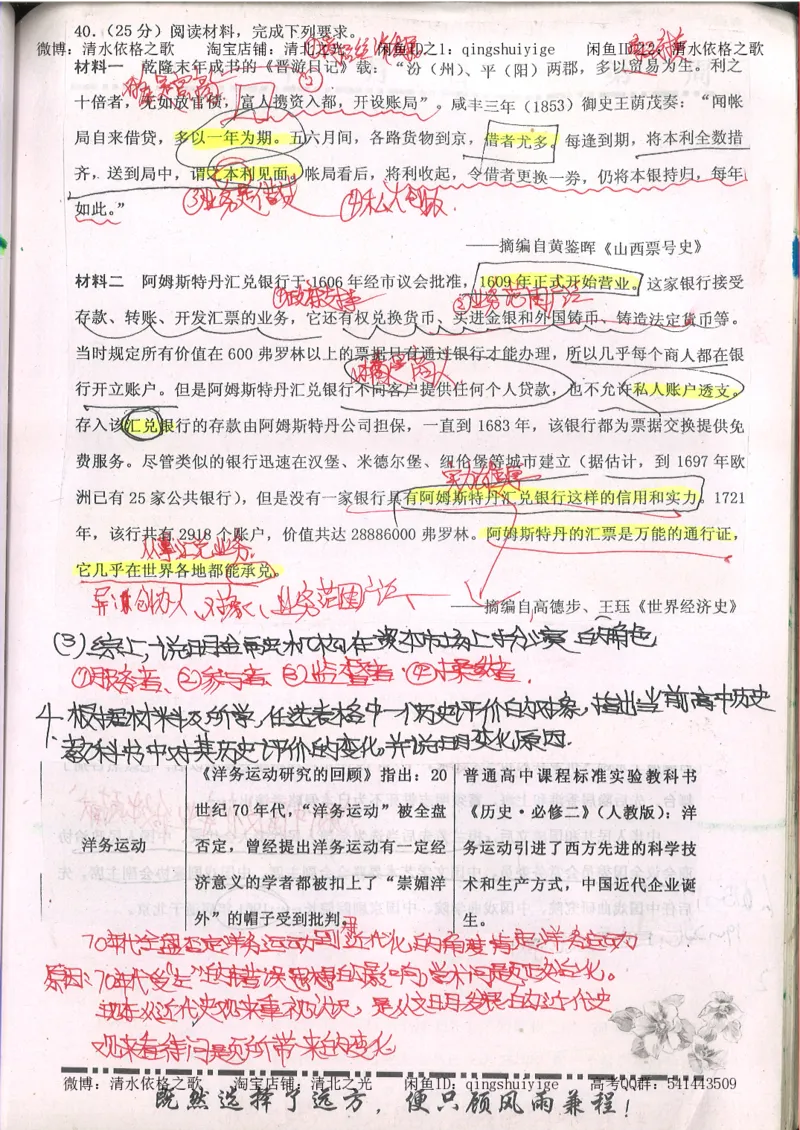 40.（25 分）阅读材料，完成下列要求。
微博：清水依格之歌 淘宝店铺：清北之光 闲鱼ID之1：qingshuiyige 闲鱼ID之2：清水依格之歌
材料一 乾隆末年成书的《晋游日记》载：“汾（州）、平（阳）两郡，多以贸易为生。利之
十倍者，无如放官债，富人携资入都，开设账局”。咸丰三年（1853）御史王荫茂奏：“闻帐
②
局自来借贷，多以一年为期。五六月间，各路货物到京，借者尤多。每逢到期，将本利全数措
齐，送到局中，谓之本利见面。帐局看后，将利收起，令借者更换一券，仍将本银持归，每年
如此。”
③业务是借贷 ④私人创版
——摘编自黄鉴晖《山西票号史》
材料二 阿姆斯特丹汇兑银行于 1606 年经市议会批准，1609 年正式开始营业。这家银行接受
①政府支持 ②业务范围广泛
存款、转账、开发汇票的业务，它还有权兑换货币、买进金银和外国铸币、铸造法定货币等。
当时规定所有价值在 600 弗罗林以上的票据只有通过银行才能办理，所以几乎每个商人都在银
行开立账户。但是阿姆斯特丹汇兑银行不向客户提供任何个人贷款，也不允许私人账户透支。
存入该汇兑银行的存款由阿姆斯特丹公司担保，一直到 1683 年，该银行都为票据交换提供免
费服务。尽管类似的银行迅速在汉堡、米德尔堡、纽伦堡等城市建立（据估计，到 1697 年欧
实力雄厚
洲已有 25 家公共银行），但是没有一家银行具有阿姆斯特丹汇兑银行这样的信用和实力。1721
年，该行共有 2918 个账户，价值共达 28886000 弗罗林。阿姆斯特丹的汇票是万能的通行证，
从事汇兑业务
它几乎在世界各地都能承兑。
异：创办人、对象、业务范围广泛、
——摘编自高德步、王珏《世界经济史》
(3)综上，说明金融机构在资本市场上扮演的角色
①服务者、②参与者、③监督者、④
4、根据材料及所学，任选表格中一个历史评价的对象，指出当前高中历史
教科书中对其历史评价的变化，并说明变化原因.
《洋务运动研究的回顾》指出：20
世纪 70 年代，“洋务运动”被全盘
否定，曾经提出洋务运动有一定经
济意义的学者都被扣上了“崇媚洋
外”的帽子受到批判。
普通高中课程标准实验教科书
《历史·必修二》（人教版）：洋
务运动引进了西方先进的科学技
术和生产方式，中国近代企业诞
生。
洋务运动
70年代全盘否定洋务运动到近代化的角度肯定洋务运动
原因：70年代受“左”的错误思想的影响，学术问题政治化。
现在从近代史观来重视认识，是从文明发展的近代史
观来看待问题所带来的变化
微博：清水依格之歌 淘宝店铺：清北之光 闲鱼ID：qingshuiyige 高考QQ群：541443509
既然选择了远方，便只顾风雨兼程！